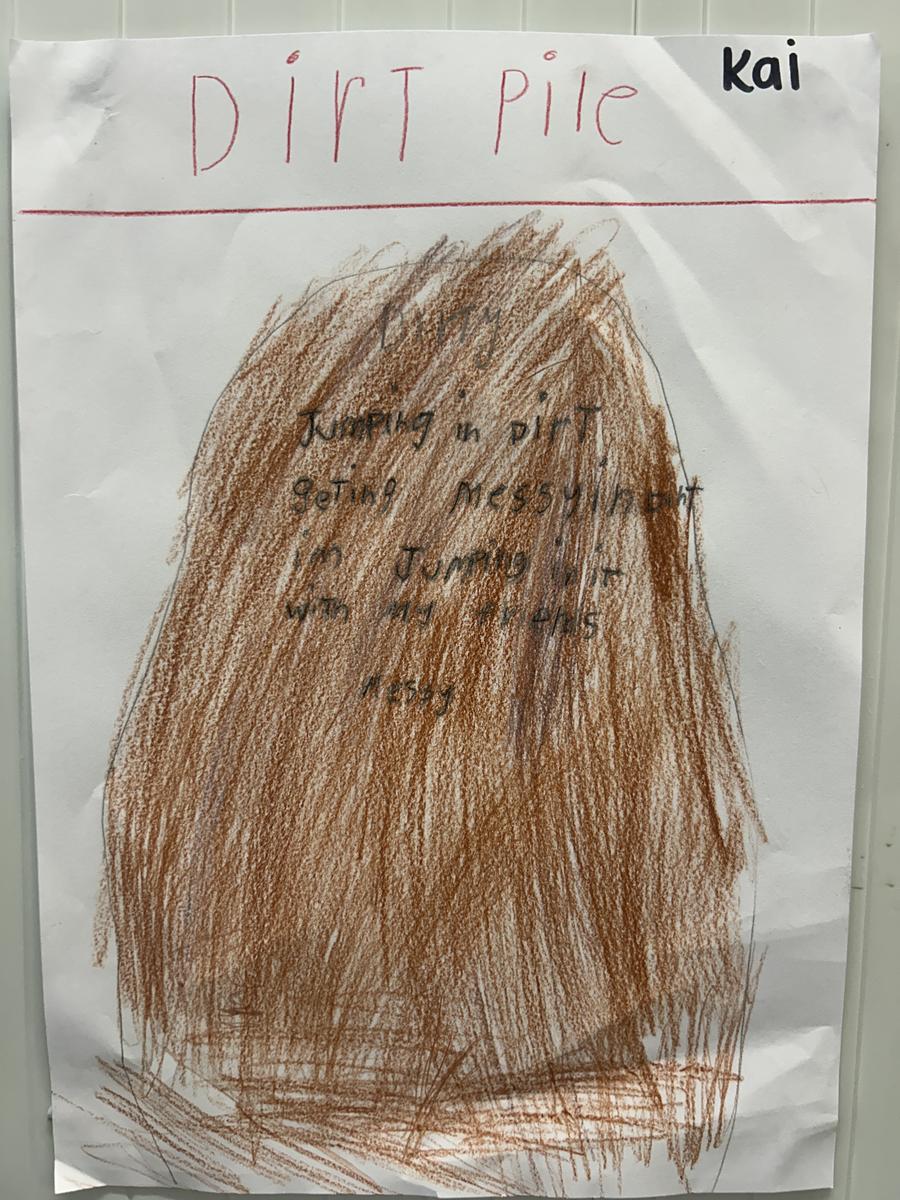 Kai
Dirt Pile
Dirty
Jumping in Dirt
geting messy in
im Jumping in it
with my friends
Messy